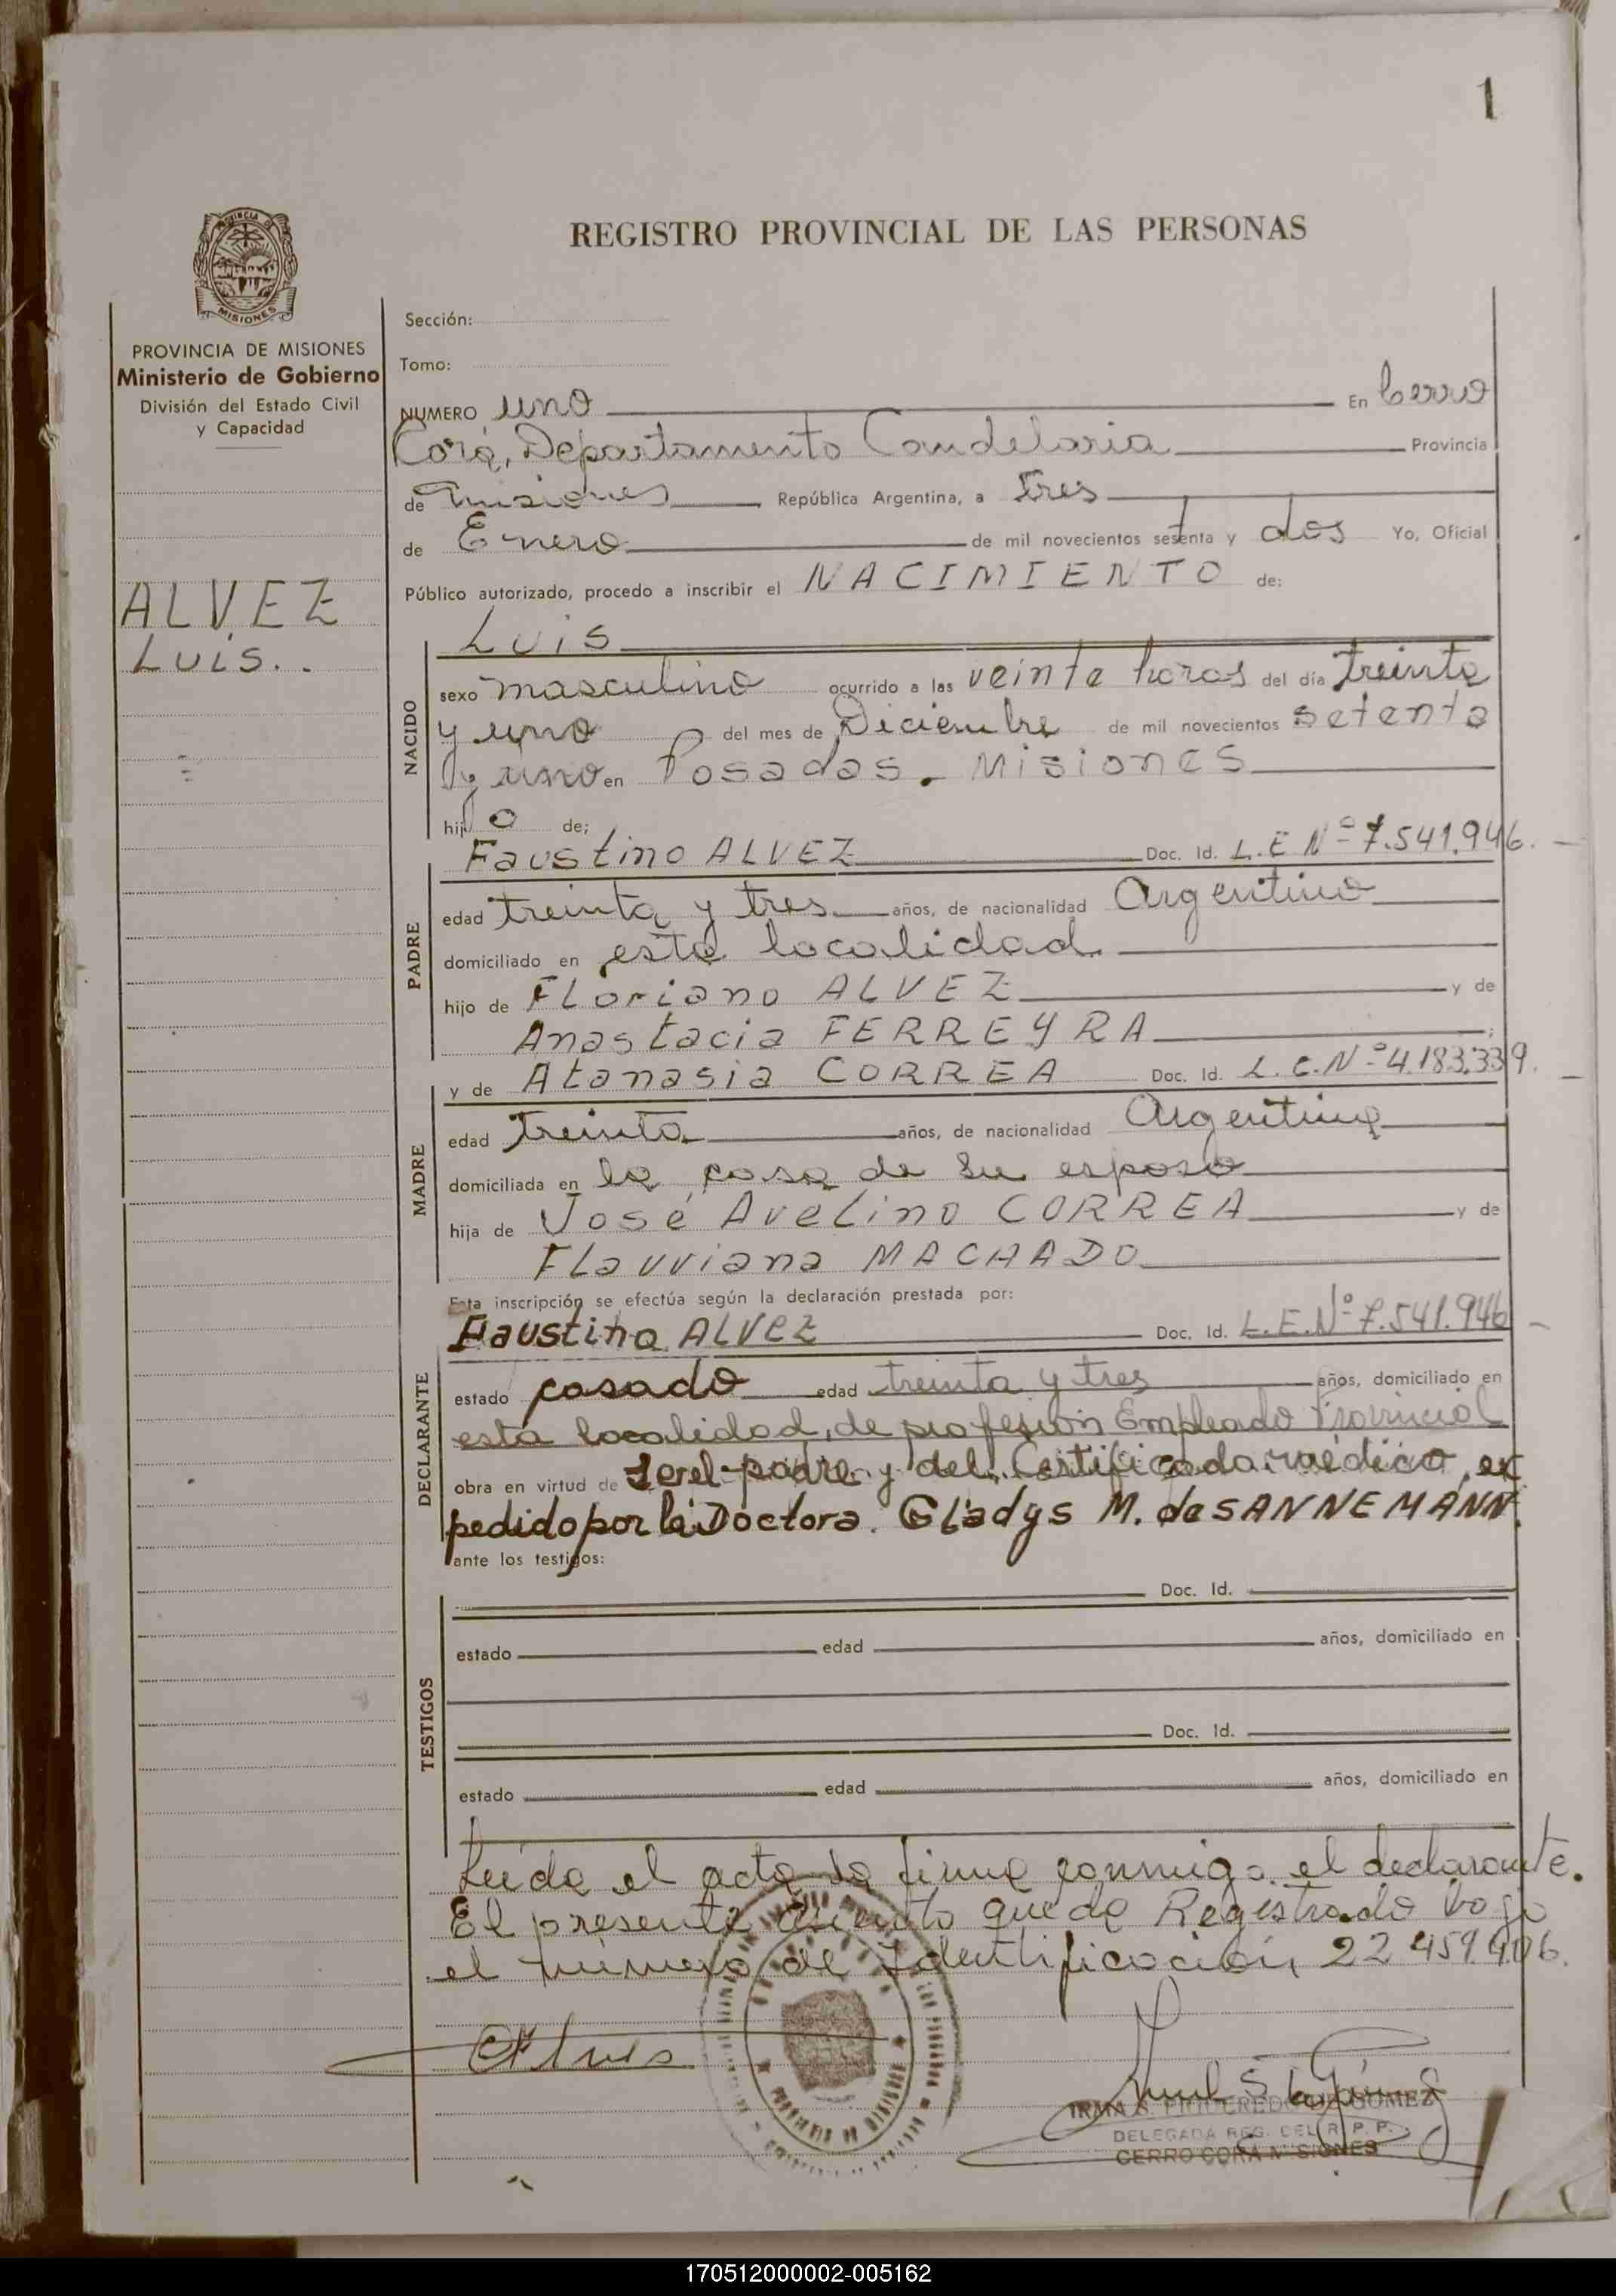 1
REGISTRO PROVINCIAL DE LAS PERSONAS
PROVINCIA DE
MISIONES
PROVINCIA DE MISIONES
Ministerio de Gobierno
División del Estado Civil
y Capacidad
ALVEZ
LUIS..
Sección:
Tomo:
NUMERO uno En Cerro
Corá, Departamento Candelaria Provincia
de Misiones República Argentina, a Tres
de Enero de mil novecientos setenta y dos Yo, Oficial
Público autorizado, procedo a inscribir el NACIMIENTO de:
Luis
NACIDO
sexo masculino ocurrido a las veinte horas del día treinta
y uno del mes de Diciembre de mil novecientos setenta
y uno en Posadas. Misiones
hijo de;
Faustino ALVEZ Doc. Id. L.E Nº 7.541.946.
PADRE
edad treinta y tres años, de nacionalidad Argentino
domiciliado en esta localidad.
hijo de Floriano ALVEZ y de
Anastacia FERREYRA ;
y de Atanasia CORREA Doc. Id. L.C.Nº 4.183.339.
MADRE
edad treinta años, de nacionalidad Argentina
domiciliada en la casa de su esposo
hija de José Avelino CORREA y de
Flavviana MACHADO
Esta inscripción se efectúa según la declaración prestada por:
Faustino ALVEZ Doc. Id. L.E.Nº 7.541.946
DECLARANTE
estado casado edad treinta y tres años, domiciliado en
esta localidad, de profesión Empleado Provincial
obra en virtud de ser el padre y del Certificado médico, ex
pedido por la Doctora. Gladys M. de SANNEMANN.
ante los testigos:
TESTIGOS
Doc. Id.
estado edad años, domiciliado en
Doc. Id.
estado edad años, domiciliado en
Leída el acta la firma conmigo el declarante.
El presente asiento queda Registrado bajo
el número de Identificación 22 459.906.
IRMA S. FIGUEREDO DE GOMEZ
DELEGADA REG. DEL R. P. P.
CERRO CORA MISIONES
170512000002-005162